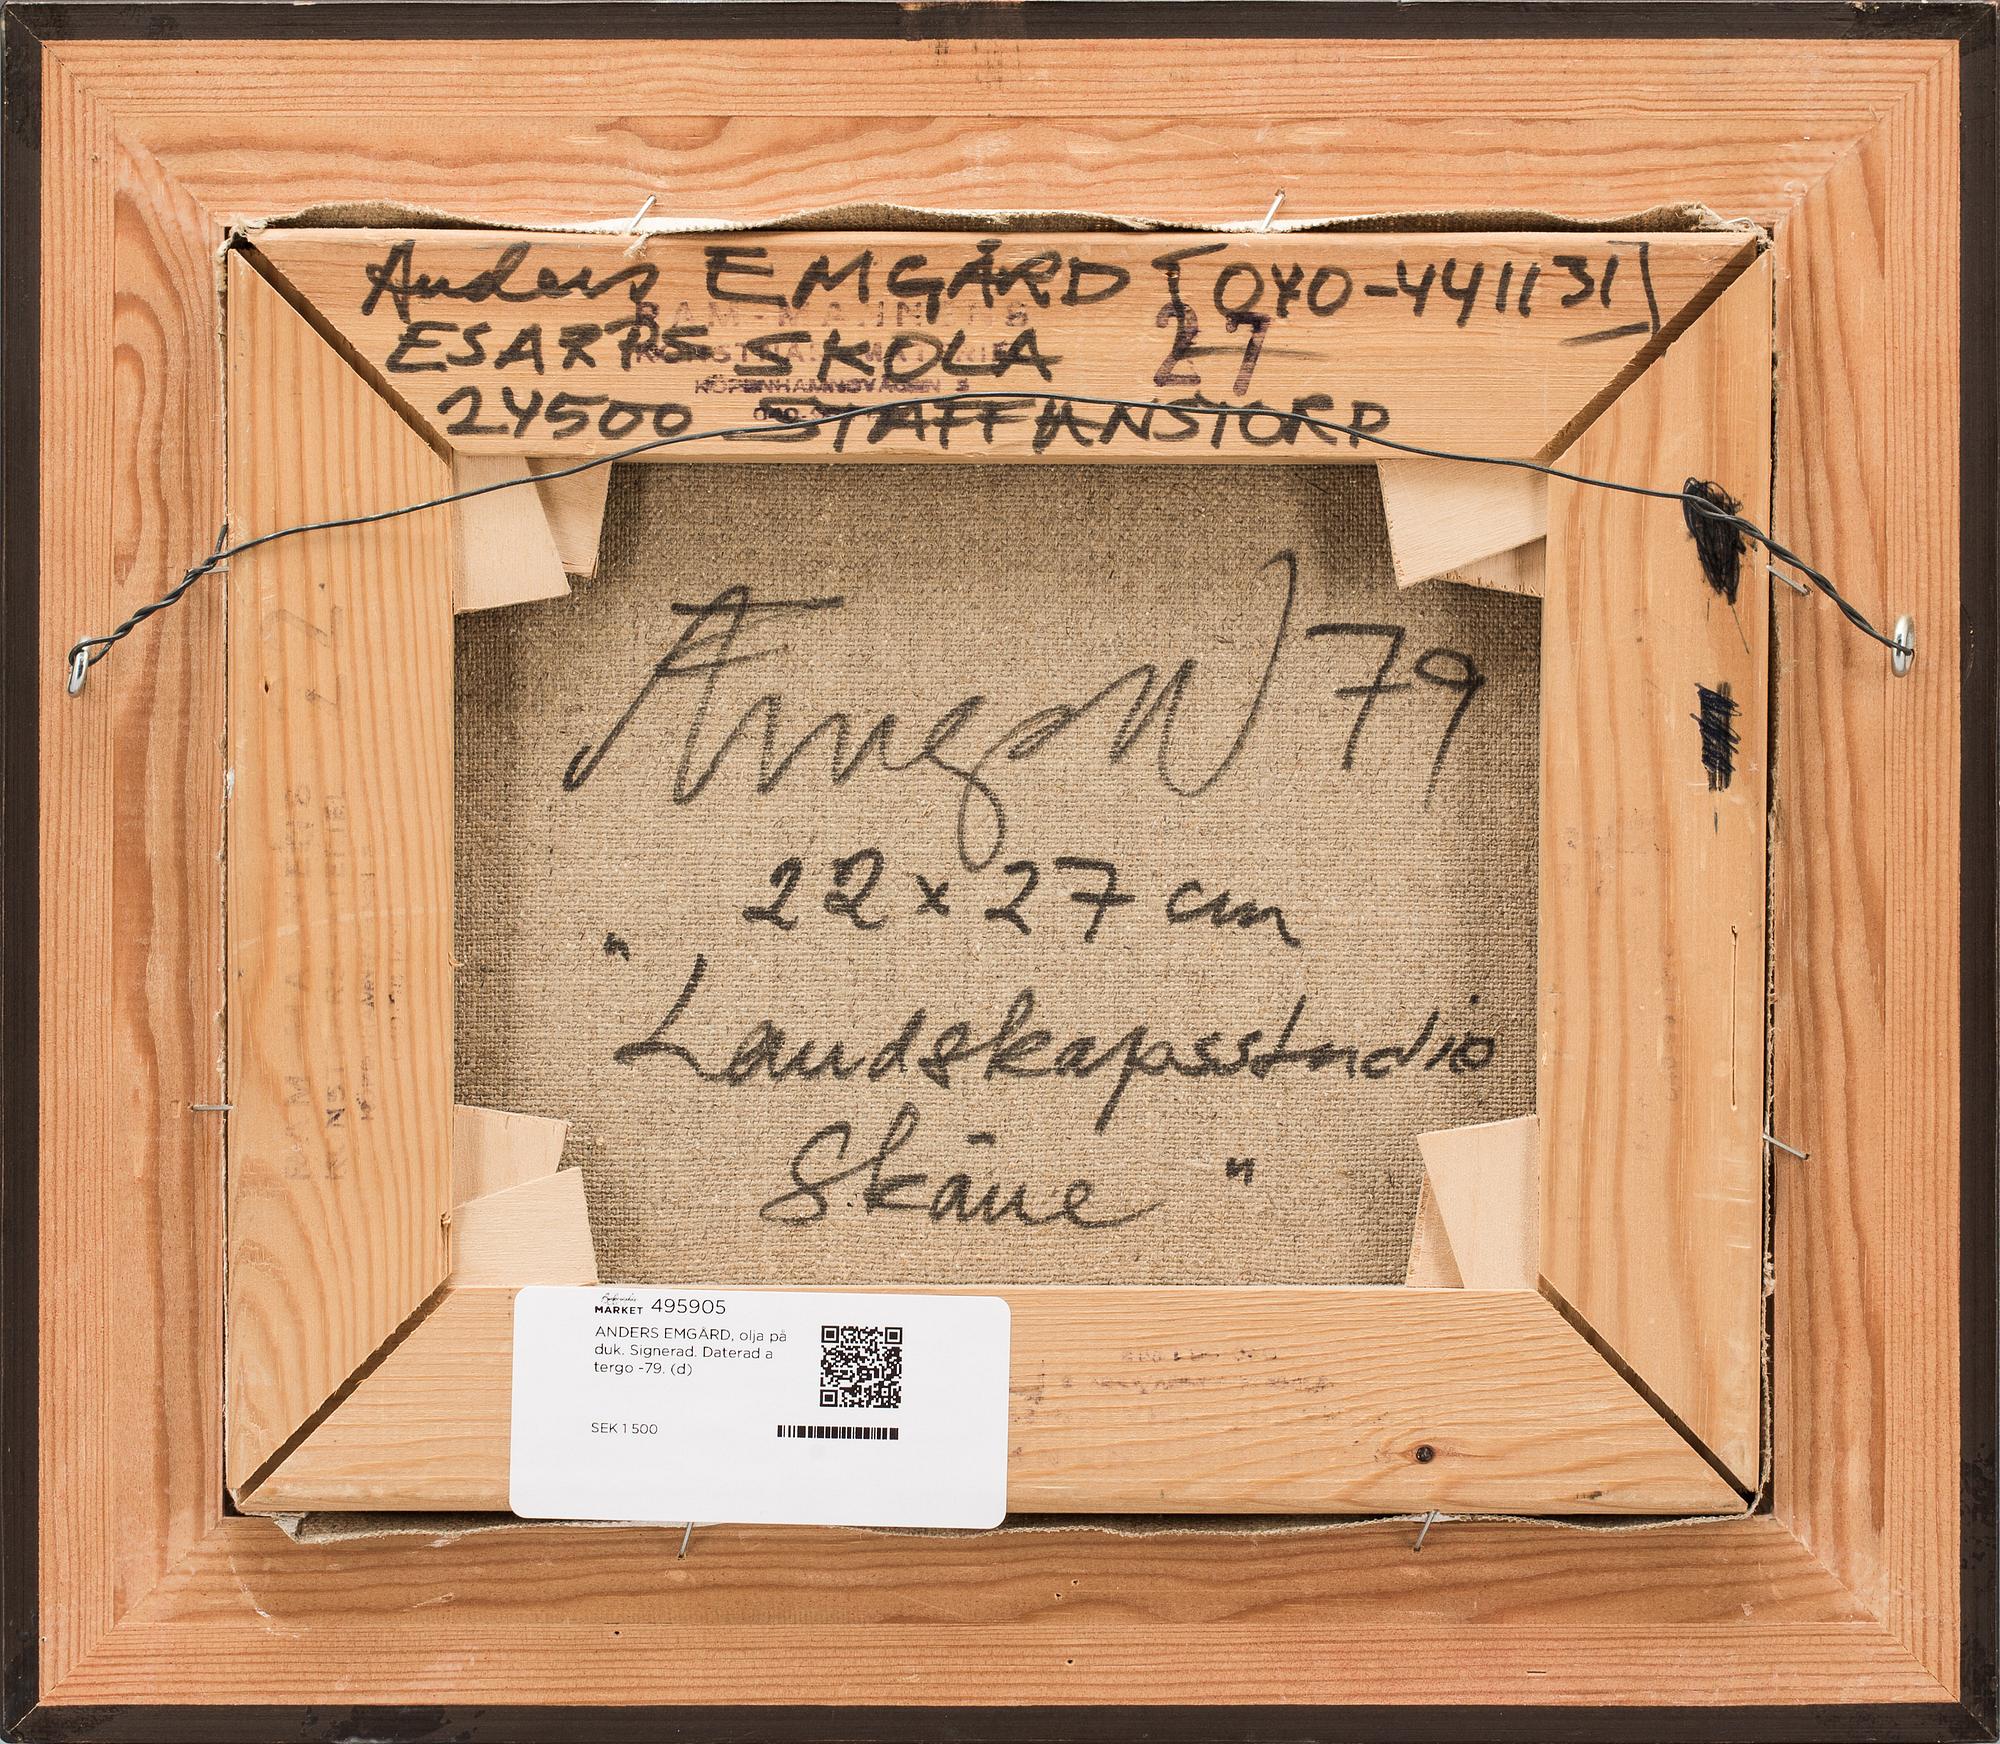 Anders EMGÅRD [040-441131]
ESARPS SKOLA
27
KÖPENHAMNSVÄGEN 3
24500 STAFFANSTORP
79
22 x 27 cm
"Landskapsstudie
Skåne"
MARKET 495905
ANDERS EMGÅRD, olja på
duk. Signerad. Daterad a
tergo -79. (d)
SEK 1 500